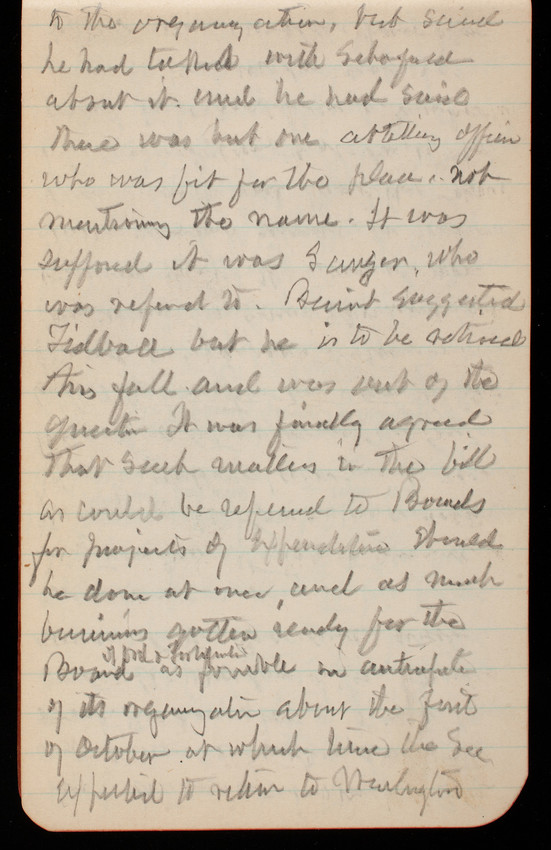 to the organization, but said
he had talked with Schofield
about it and he had said
there was but one artillery officer
who was fit for the place, not
mentioning the name. It was
supposed it was Sanger, who
was referred to. Benét suggested
Tidball but he is to be retired
this fall and was out of the
question It was finally agreed
that such matters in the bill
as could be referred to Boards
for projects of Expenditure should
be done at once, and as much
business gotten ready for the
of Ord & Fortification
Board as possible in anticipate
of its organization about the first
of October at which time the Sec
expected to return to Washington